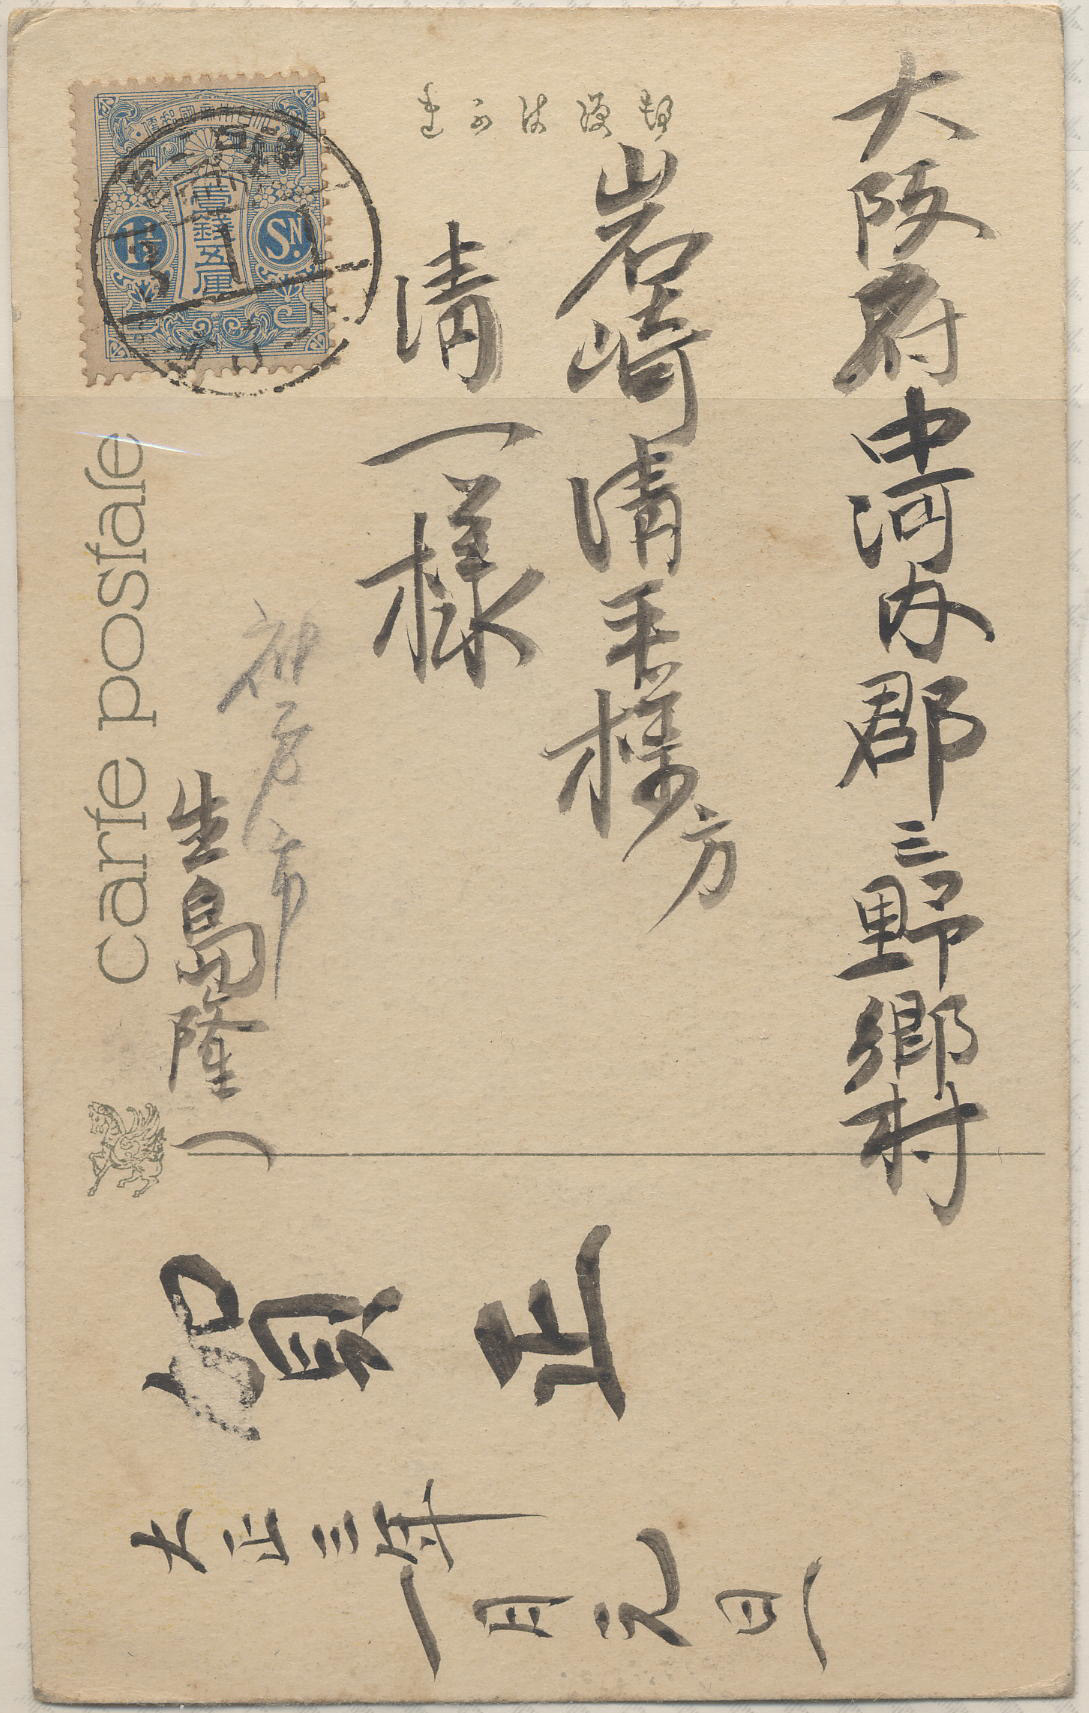 郵便はかき
大日本帝國郵便
壹錢五厘
1½ SN.
大阪府中河内郡三野郷村
岩崎清 様方
清一様
神戸市
生島隆
carte postale
賀正
大正三年
一月元旦